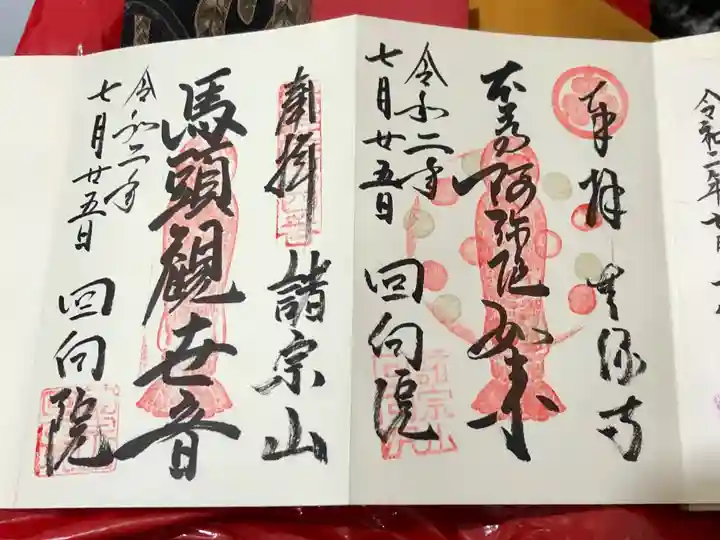 奉拝
無縁寺
本尊阿弥陀如来
令和二年
七月廿五日
回向院
奉拝
諸宗山
馬頭観世音
令和二年
七月廿五日
回向院
令和二年